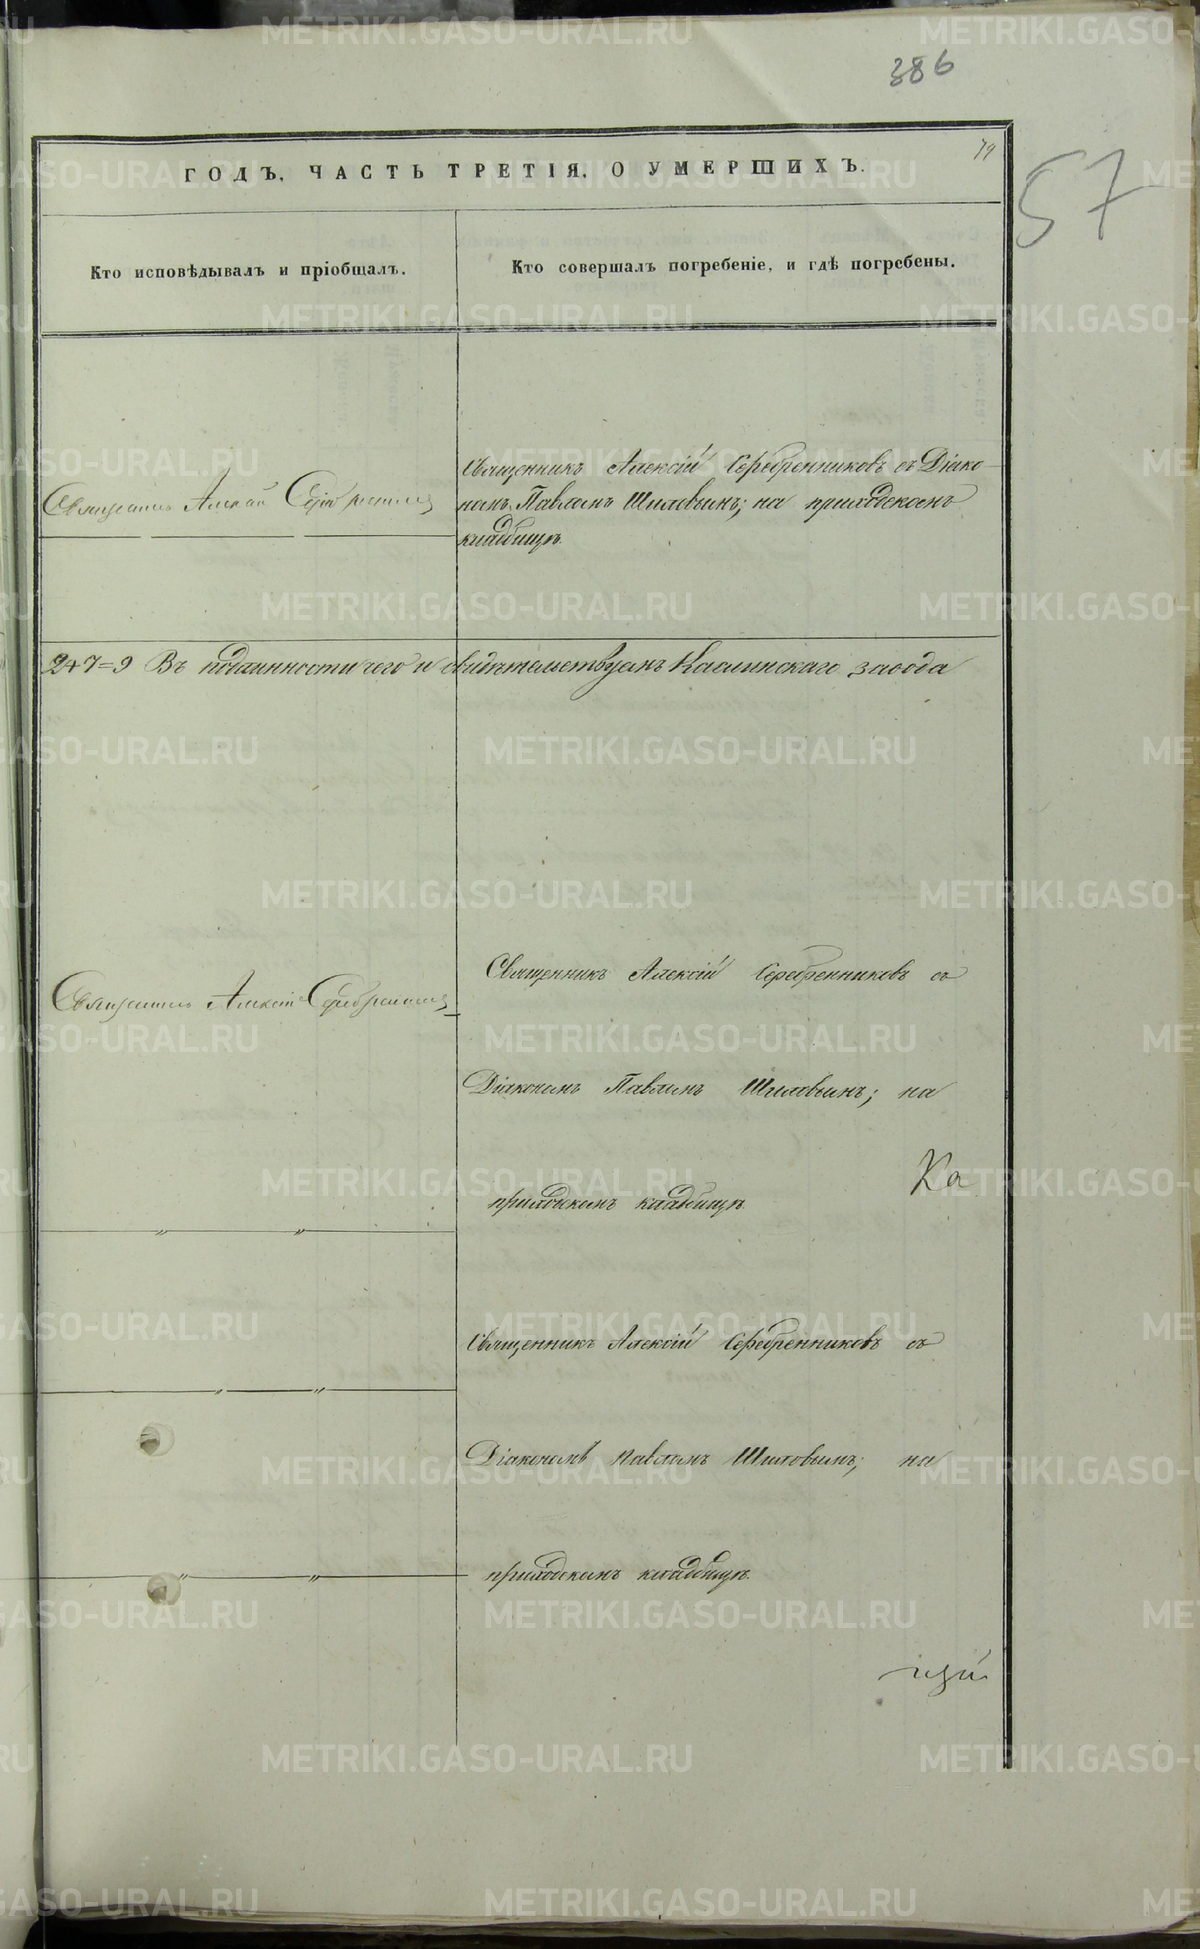 386
79
57
ГОДЪ, ЧАСТЬ ТРЕТІЯ, О УМЕРШИХЪ.
Кто исповѣдывалъ и пріобщалъ.
Кто совершалъ погребеніе, и гдѣ погребены.
Священникъ Алексій Серебренниковъ съ Діако-
Священникъ Алексій Серебренниковъ
номъ Павломъ Шиловымъ; на приходскомъ
кладбищѣ.
2+7=9 Въ подлинности чего и свидѣтельствуемъ Каслинскаго завода
Священникъ Алексій Серебренниковъ съ
Священникъ Алексій Серебренниковъ
Діакономъ Павломъ Шиловымъ; на
Ка
приходскомъ кладбищѣ.
Священникъ Алексій Серебренниковъ съ
Діакономъ Павломъ Шиловымъ; на
приходскомъ кладбищѣ.
METRIKI.GASO-URAL.RU